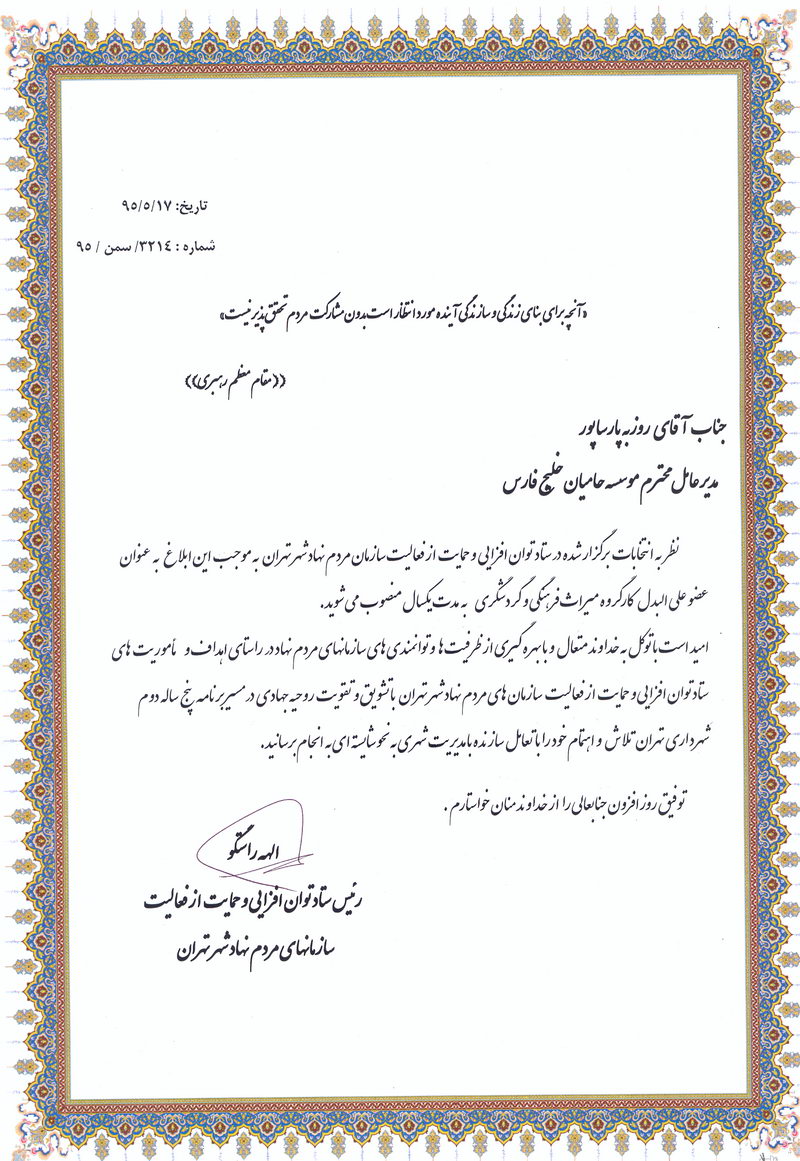 تاریخ: ۹۵/۵/۱۷
شماره : ۳۲۱۴/ سمن / ۹۵
«آنچه برای بنای زندگی و سازندگی آینده مورد انتظار است بدون مشارکت مردم تحقق پذیر نیست»
((مقام معظم رهبری))
جناب آقای روزبه پارساپور
مدیر عامل محترم موسسه حامیان خلیج فارس
نظر به انتخابات برگزار شده در ستاد توان افزایی و حمایت از فعالیت سازمان مردم نهاد شهر تهران به موجب این ابلاغ به عنوان
عضو علی البدل کارگروه میراث فرهنگی و گردشگری به مدت یکسال منصوب می شوید.
امید است با توکل به خداوند متعال و با بهره گیری از ظرفیت ها و توانمندی های سازمانهای مردم نهاد در راستای اهداف و مأموریت های
ستاد توان افزایی و حمایت از فعالیت سازمان های مردم نهاد شهر تهران با تشویق و تقویت روحیه جهادی در مسیر برنامه پنج ساله دوم
شهرداری تهران تلاش و اهتمام خود را با تعامل سازنده با مدیریت شهری به نحو شایسته ای به انجام برسانید.
توفیق روز افزون جنابعالی را از خداوند منان خواستارم .
الهه راستگو
رئیس ستاد توان افزایی و حمایت از فعالیت
سازمانهای مردم نهاد شهر تهران